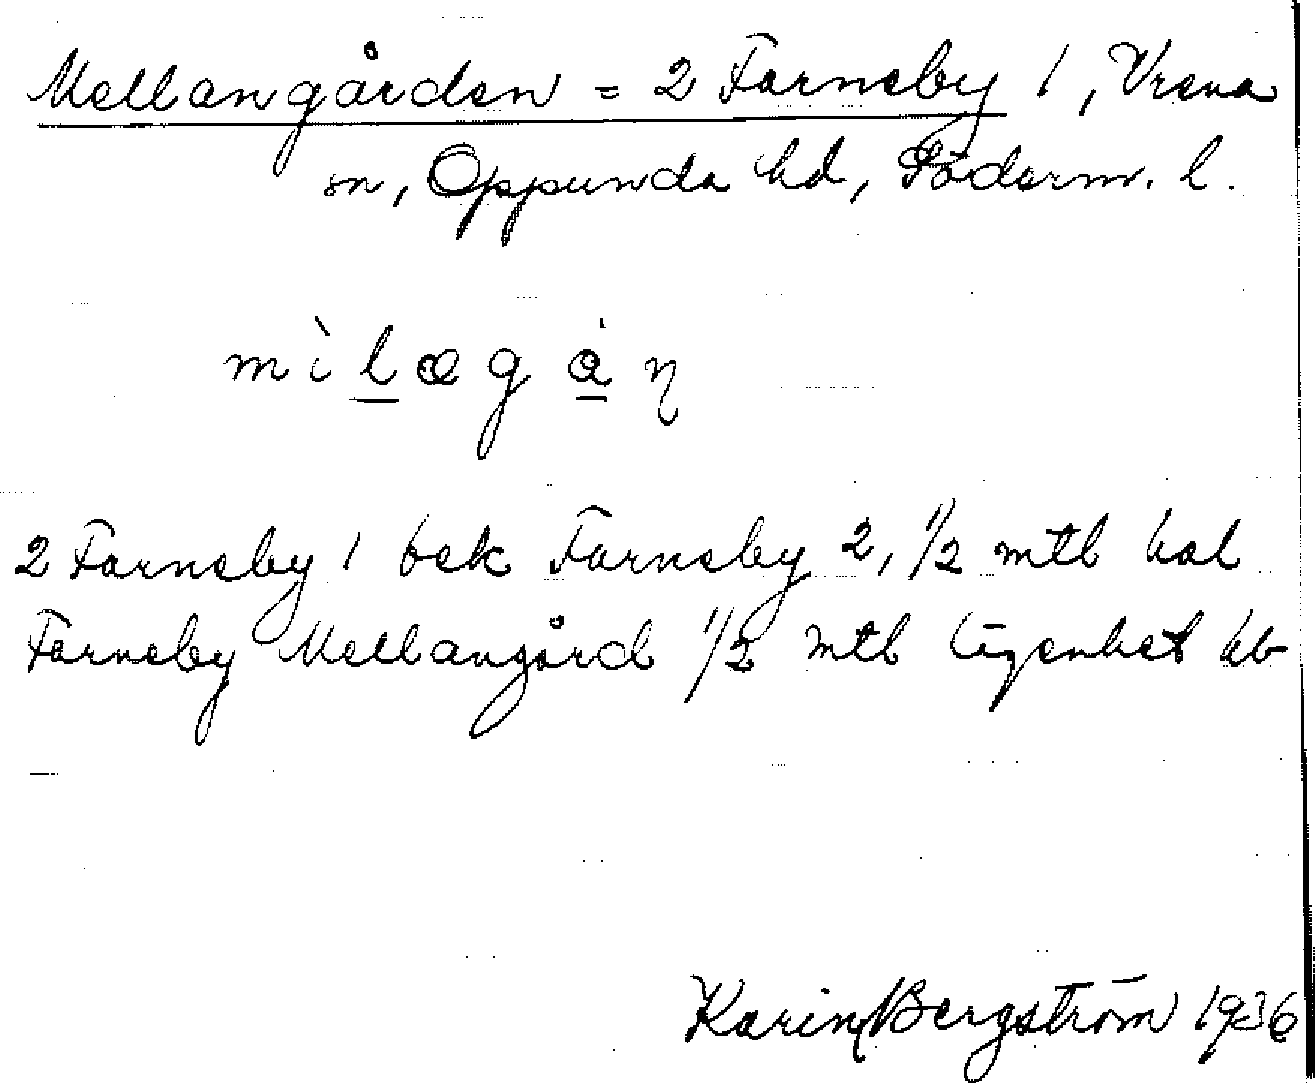 Mellangården = 2 Farneby 1, Vrena
sn, Oppunda hd, Söderm. l.
mìlægån
2 Farneby 1 bek Farneby 2, 1/2 mtl
Farneby Mellangård 1/2 mtl lägenhet
Karin Bergström 1936